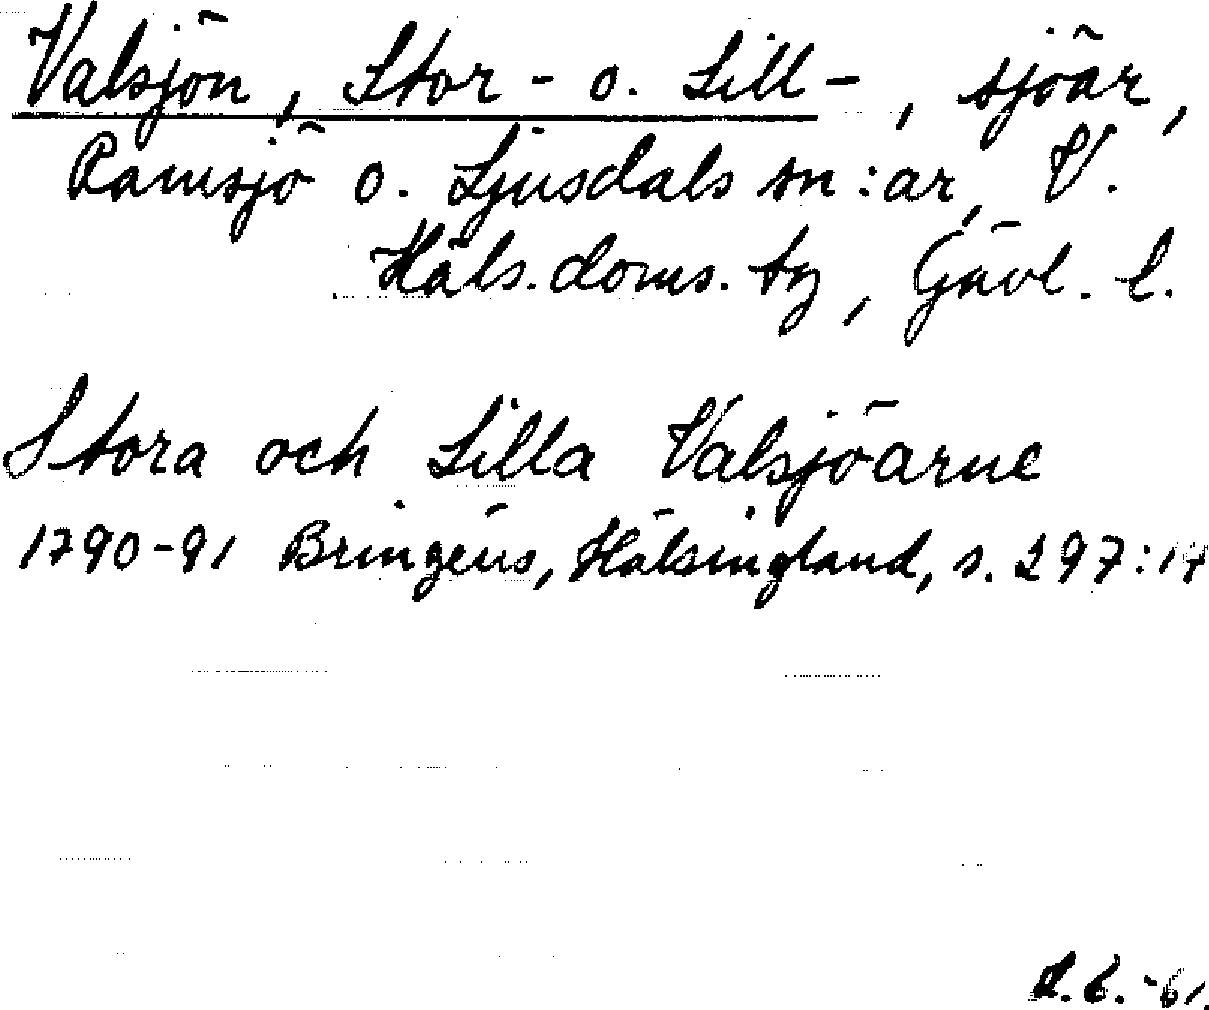 Valsjön, Stor- o. Lill-, sjöar,
Ramsjö o. Ljusdals sn:ar, V.
Häls. doms. tg, Gävl. l.
Stora och Lilla Valsjöarne
1790-91 Bringéus, Hälsingland, s. 297:17
-61.